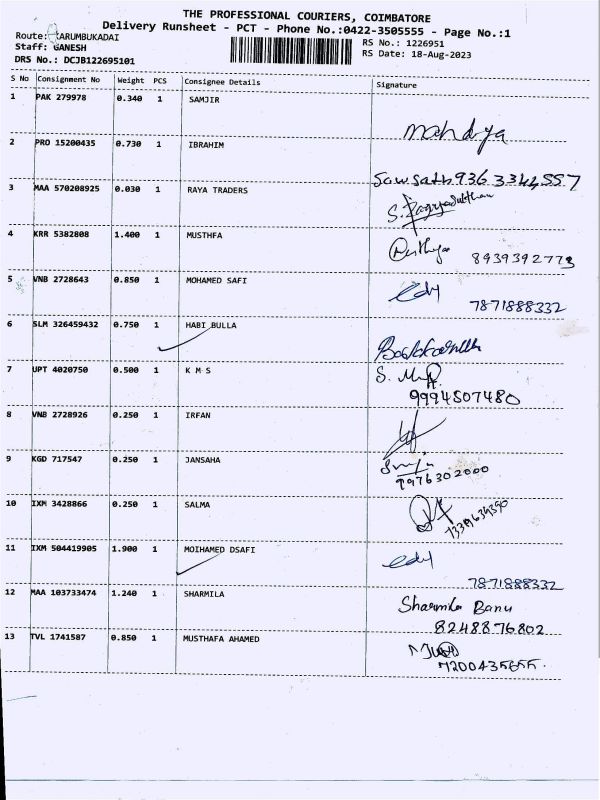 THE PROFESSIONAL COURIERS, COIMBATORE
Delivery Runsheet - PCT - Phone No.:0422-3505555 - Page No.:1
Route: KARUMBUKADAI
Staff: GANESH
DRS No.: DCJB122695101
RS No.: 1226951
RS Date: 18-Aug-2023
S No Consignment No Weight PCS Consignee Details Signature
1 PAK 279978 0.340 1 SAMJIR
2 PRO 15200435 0.730 1 IBRAHIM 9363344557
3 MAA 570208925 0.030 1 RAYA TRADERS
4 KRR 5382808 1.400 1 MUSTHFA 8939392773
5 VNB 2728643 0.850 1 MOHAMED SAFI 7871888332
6 SLM 326459432 0.750 1 HABI BULLA
7 UPT 4020750 0.500 1 K M S 9994507480
8 VNB 2728926 0.250 1 IRFAN
9 KGD 717547 0.250 1 JANSAHA 9976302000
10 IXM 3428866 0.250 1 SALMA
11 IXM 504419905 1.900 1 MOIHAMED DSAFI 7871888332
12 MAA 103733474 1.240 1 SHARMILA Sharmila Banu
8248876802
13 TVL 1741587 0.850 1 MUSTHAFA AHAMED